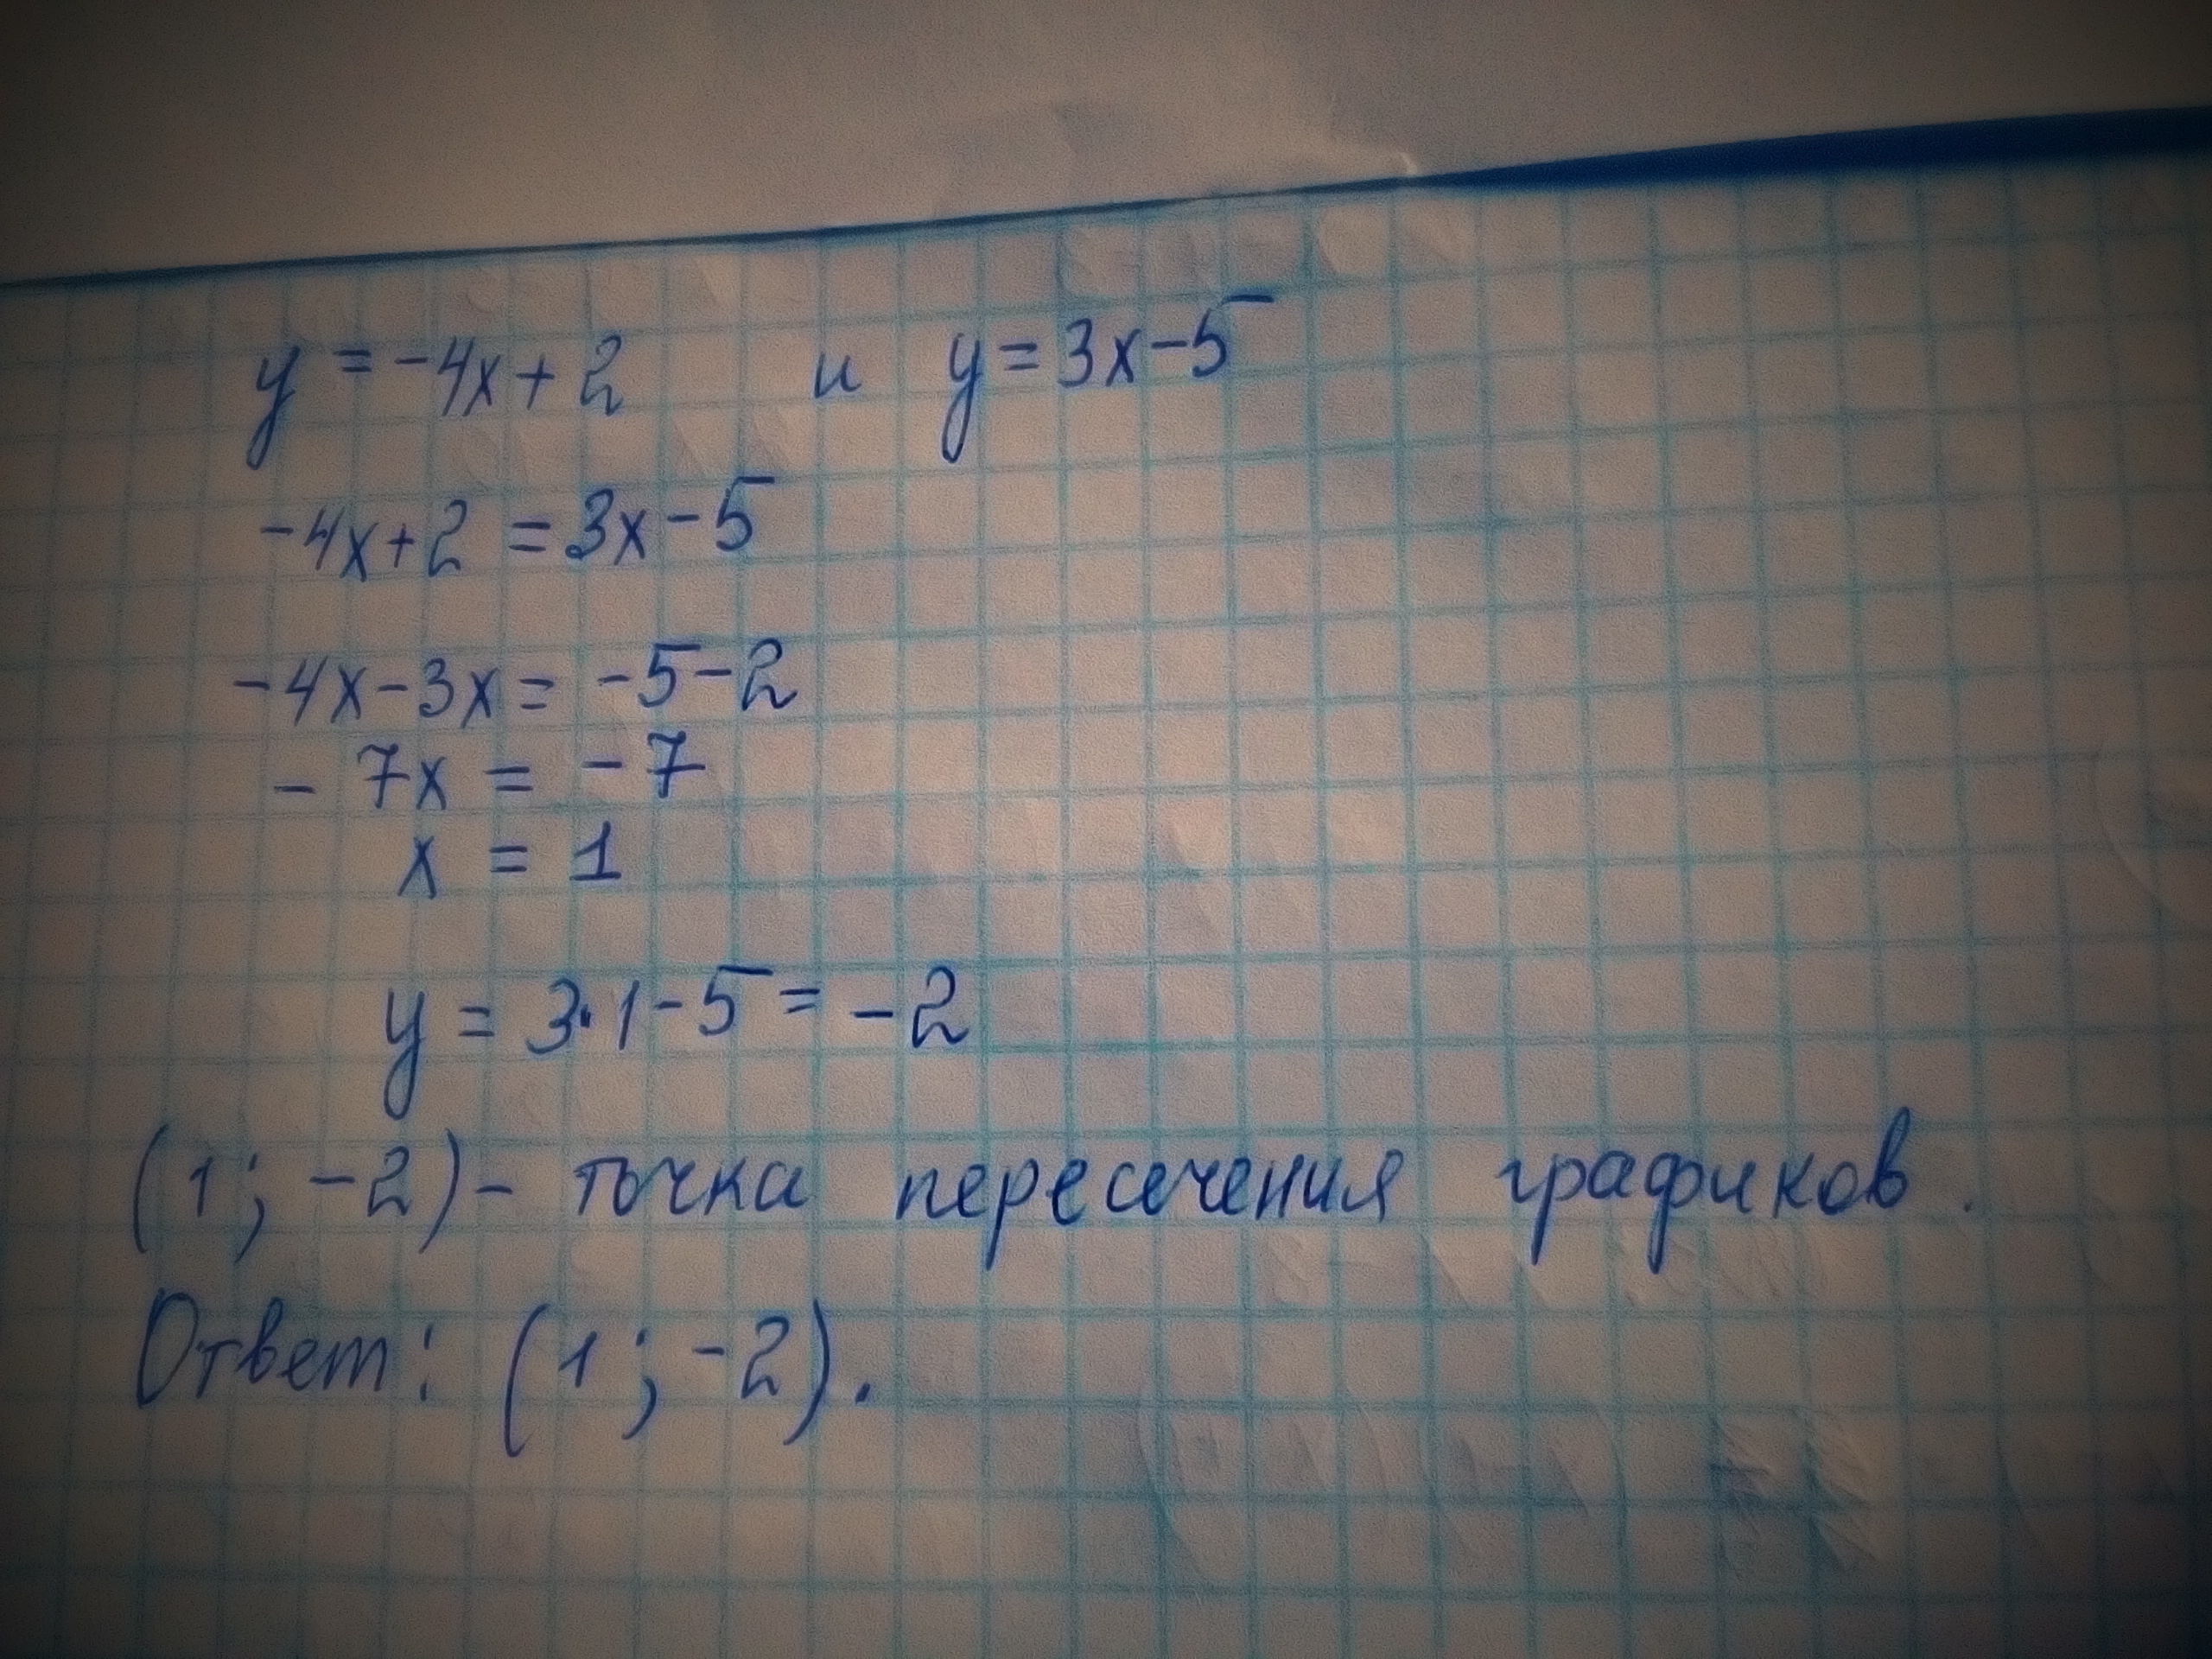 y = -4x + 2 и y = 3x - 5
-4x + 2 = 3x - 5
-4x - 3x = -5 - 2
- 7x = -7
x = 1
y = 3·1 - 5 = -2
(1; -2) - точка пересечения графиков.
Ответ: (1; -2).